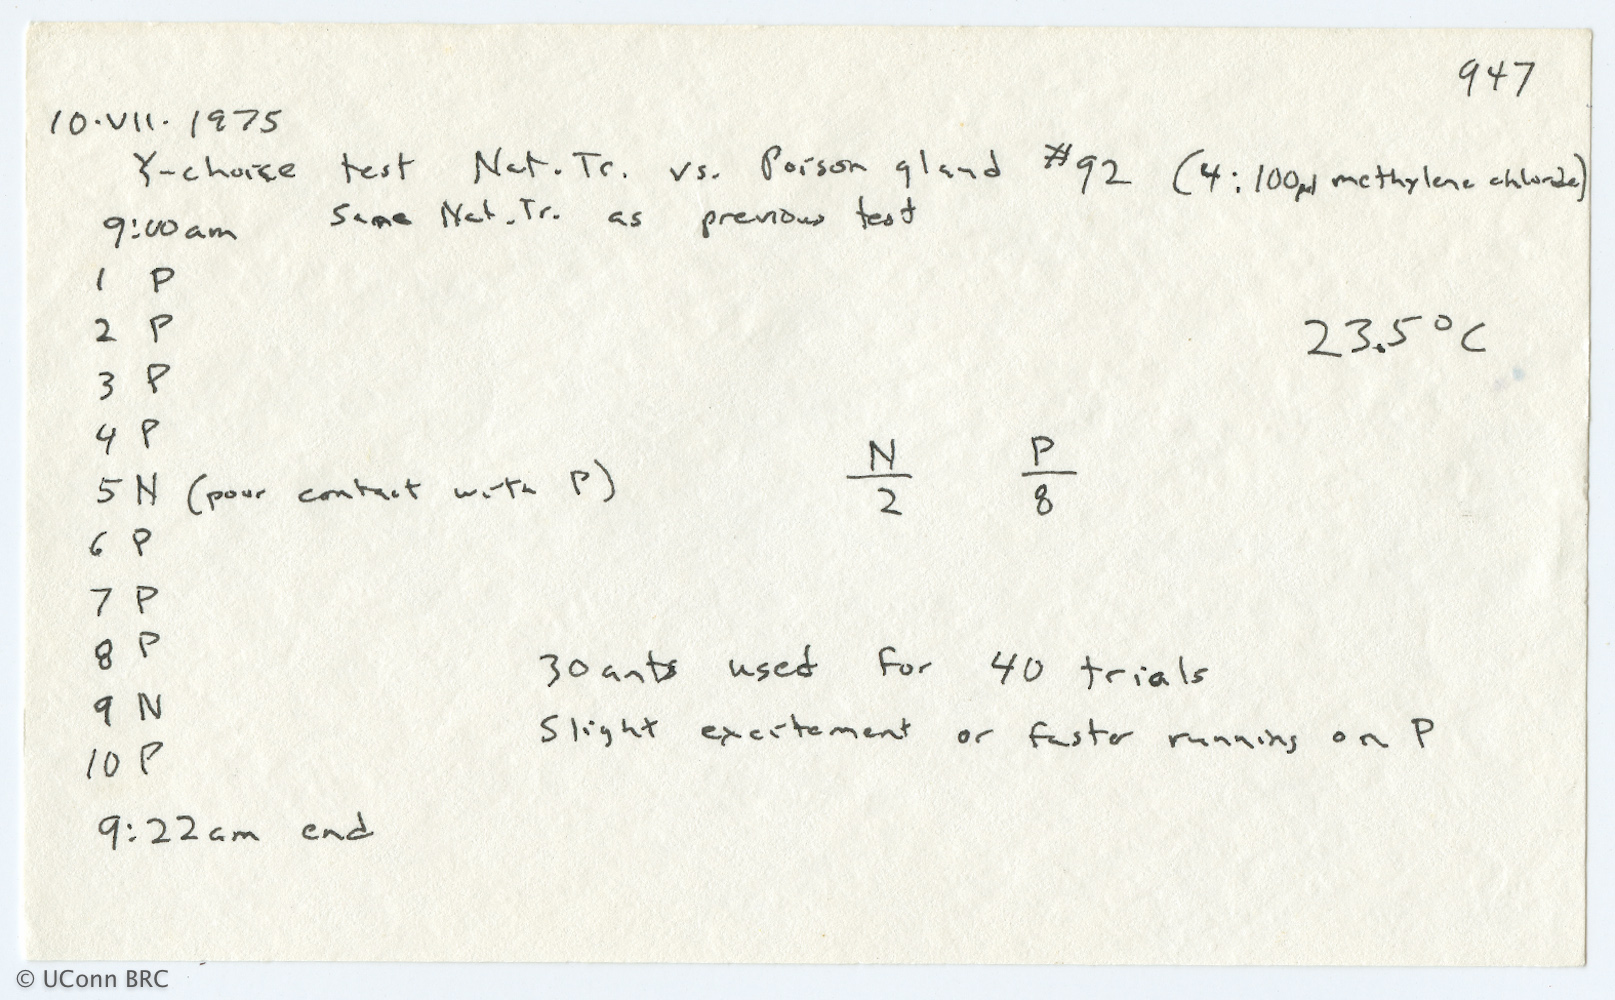 947
10.VII.1975
Y-choice test Nat.Tr. vs. Poison gland #92 (4:100µl methylene chloride)
9:00am same Nat.Tr. as previous test
1 P
2 P
3 P
23.5°C
4 P
N P
5 N (poor contact with P)
2 8
6 P
7 P
8 P
30 ants used for 40 trials
9 N
Slight excitement or faster running on P
10 P
9:22am end
© UConn BRC